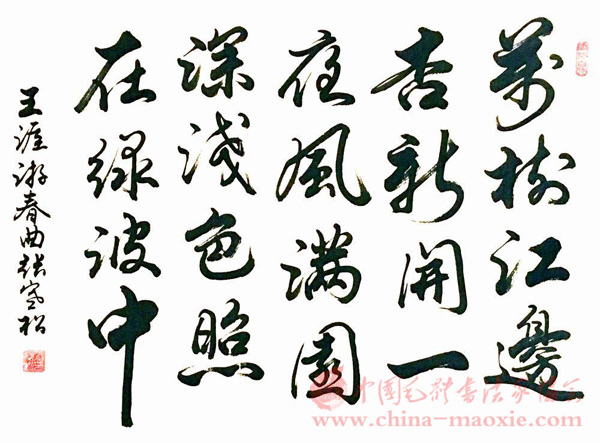 萬樹江邊
杏新開一
夜風滿園
深淺色照
在綠波中
王涯游春曲張松
中國毛體書法家協會
www.china-maoxie.com